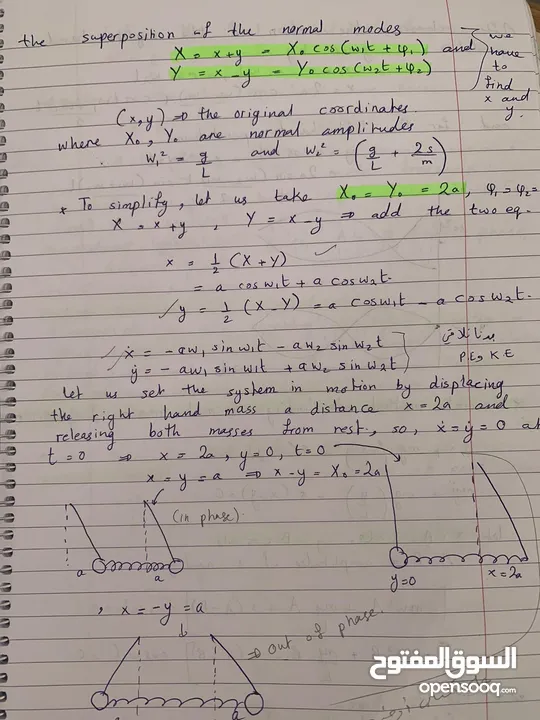 the superposition of the normal modes
X = x+y = X₀ cos(ω₁t + φ₁) and
Y = x-y = Y₀ cos(ω₂t + φ₂)
we have to find x and y.
(x,y) ⇒ the original coordinates
where X₀, Y₀ are normal amplitudes
ω₁² = g/L and ω₂² = (g/L + 2s/m)
* To simplify, let us take X₀ = Y₀ = 2a, φ₁=φ₂=
X = x+y , Y = x-y ⇒ add the two eq.
x = 1/2 (X+Y) ✓
= a cos ω₁t + a cos ω₂t.
✓ y = 1/2 (X-Y) = a cos ω₁t - a cos ω₂t.
✓ ẋ = -aω₁ sin ω₁t - aω₂ sin ω₂t
✓ ẏ = -aω₁ sin ω₁t + aω₂ sin ω₂t
P.E, K.E
Let us set the system in motion by displacing
the right hand mass a distance x=2a and
releasing both masses from rest, so, ẋ=ẏ=0 at
t=0 ⇒ x=2a, y=0, t=0
x=y=a ⇒ x-y = X₀=2a
(in phase)
a a
y=0 x=2a
, x=-y=a
⇒ out of phase.
a
السوق المفتوح
opensooq.com